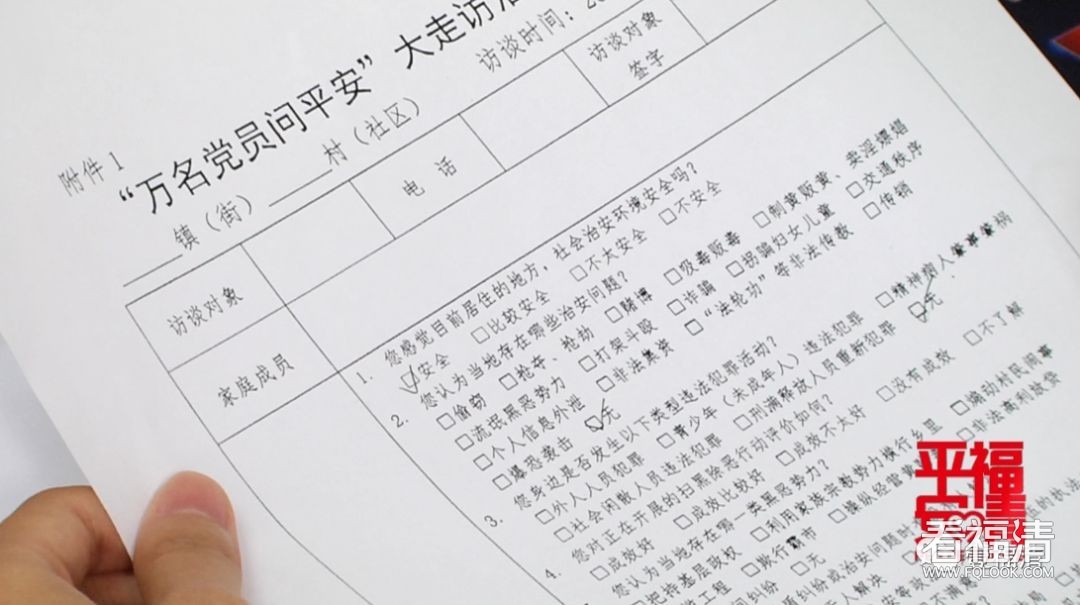 附件1
“万名党员问平安”大走访活
镇（街） 村（社区） 访谈时间：20
访谈对象 电 话 访谈对象签字
家庭成员
1. 您感觉目前居住的地方，社会治安环境安全吗？
☑安全 □比较安全 □不太安全 □不安全
2. 您认为当地存在哪些治安问题？
□偷窃 □抢夺、抢劫 □赌博 □吸毒贩毒 □制黄贩黄、卖淫嫖娼
□流氓黑恶势力 □打架斗殴 □诈骗 □拐骗妇女儿童 □交通秩序
□个人信息外泄 □非法集资 □“法轮功”等非法传教 □传销
□爆恐袭击 ☑无
3. 您身边是否发生以下类型违法犯罪活动？
□外人人员犯罪 □青少年（未成年人）违法犯罪 □精神病人肇事肇祸
□社会闲散人员违法犯罪 □刑满释放人员重新犯罪 ☑无
4. 您对正在开展的扫黑除恶行动评价如何？
□成效好 □成效比较好 □成效不太好 □没有成效 □不了解
您认为当地存在哪一类黑恶势力？
□把持基层政权 □利用家族宗教势力横行乡里 □煽动村民闹事
□欺行霸市 □操纵经营 □非法高利放贷
□无
平安福
福清
看福清
WWW.FQLOOK.COM